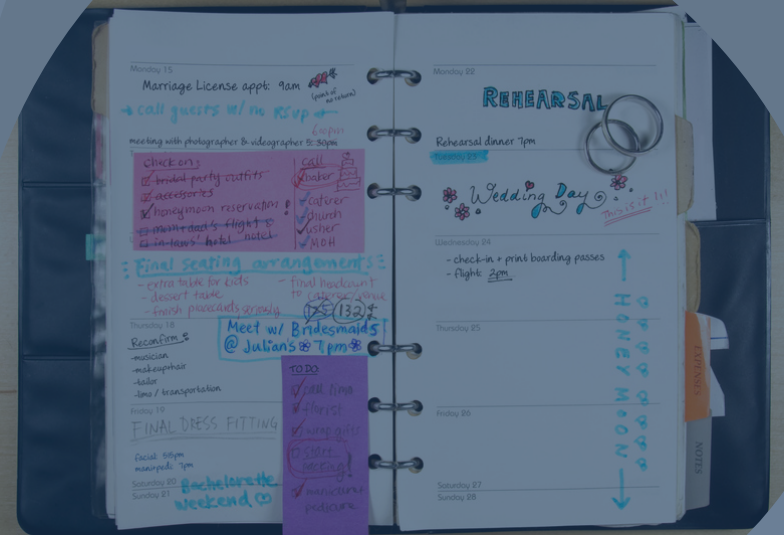 Monday 15
Marriage License appt: 9am
(point of no return)
call guests w/ no RSVP
meeting with photographer & videographer @ 5:30pm
check on:
bridal party outfits
accessories
honeymoon reservations
mom+dad's flight &
in-laws' hotel
call
baker
caterer
church
usher
MOH
Final seating arrangements
- extra table for kids
- dessert table
- finish placecards
- final headcount
to caterer/venue
125 132
Thursday 18
Reconfirm:
-musician
-makeup+hair
-tailor
-limo / transportation
Meet w/ Bridesmaids
@ Julian's 7pm
Friday 19
FINAL DRESS FITTING
facial: 5:15pm
mani+pedi 7pm
Saturday 20
Sunday 21
Bachelorette
Weekend
TO DO
call limo
florist
wrap gifts
start
packing!
manicure/
pedicure
Monday 22
REHEARSAL
Rehearsal dinner 7pm
Tuesday 23
Wedding Day
This is it!!!
Wednesday 24
- check-in + print boarding passes
- flight: 2pm
Thursday 25
Friday 26
Saturday 27
Sunday 28
HONEYMOON
EXPENSES
NOTES